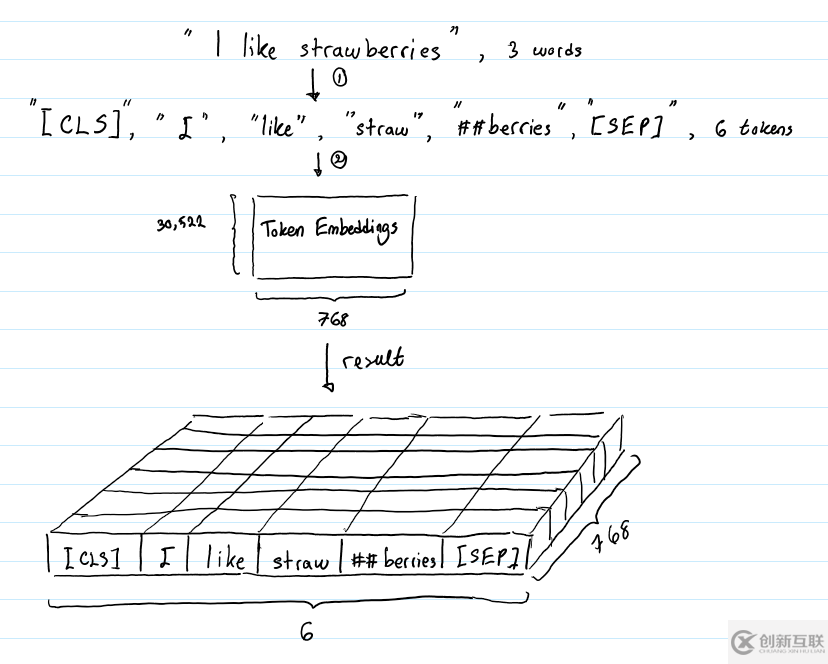 "I like strawberries", 3 words
①
"[CLS]", "I", "like", "straw", "##berries", "[SEP]", 6 tokens
②
30,522
Token Embeddings
768
result
[CLS] I like straw ##berries [SEP]
768
6
创新互联
CHUANG XIN HU LIAN